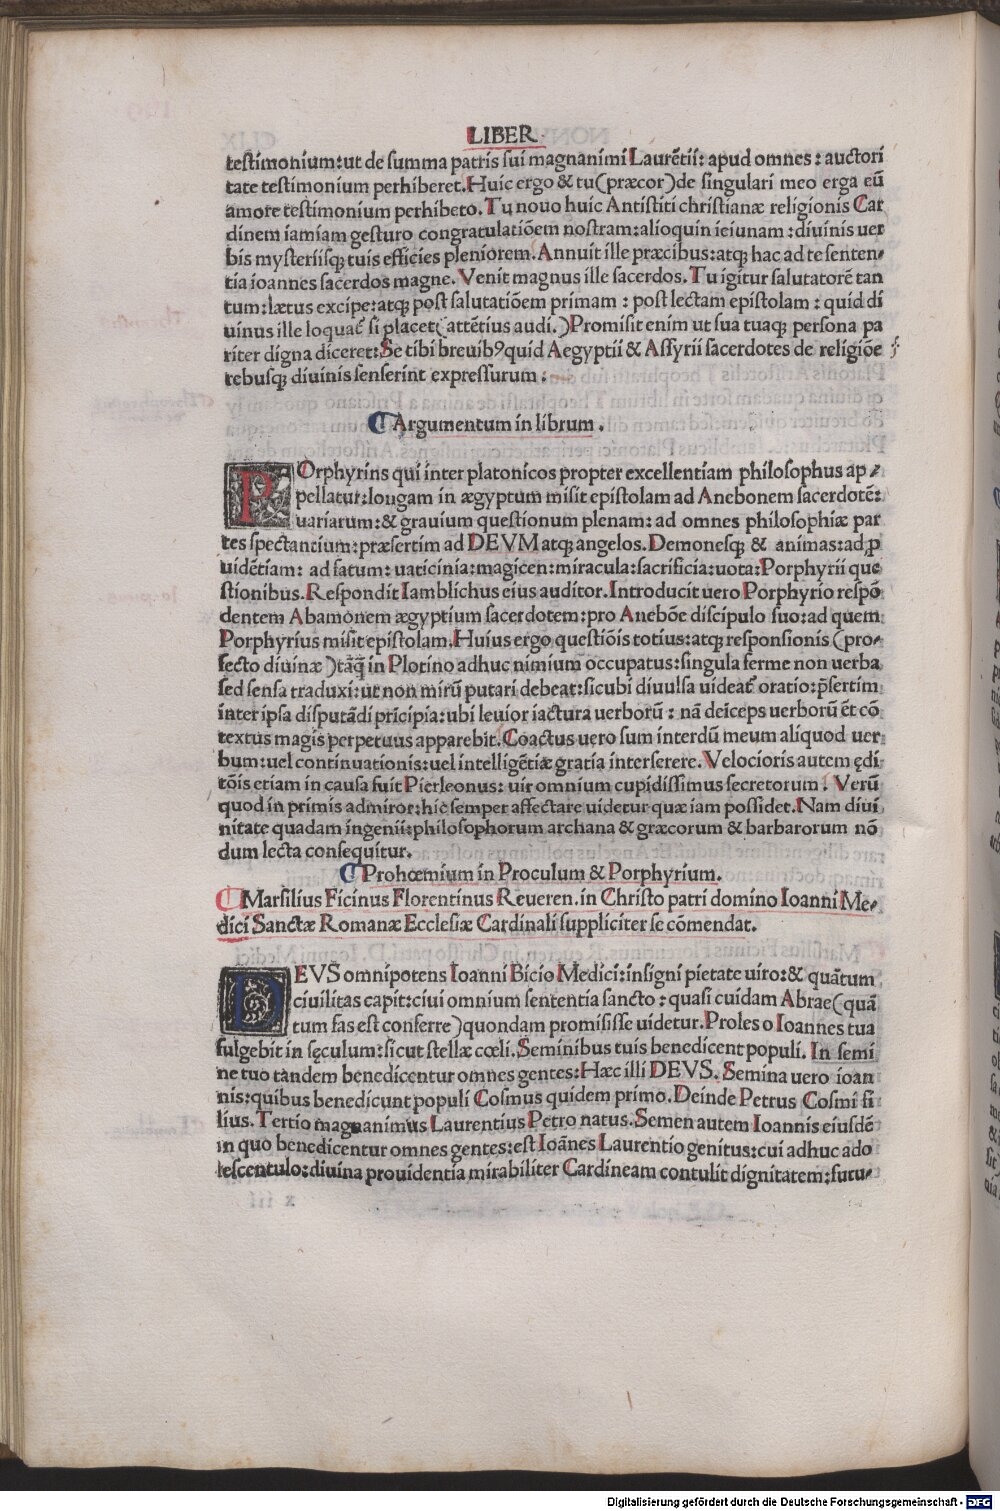 LIBER
testimonium:ut de summa patris sui magnanimi Laurẽtii: apud omnes: auctori
tate testimonium perhiberet.Huic ergo & tu(præcor)de singulari meo erga eũ
amore testimonium perhibeto.Tu nouo huic Antistiti christianæ religionis Car
dinem iamiam gesturo congratulatiõem nostram:alioquin ieiunam:diuinis uer
bis mysteriisq; tuis efficies pleniorem.Annuit ille præcibus:atq; hac ad te senten-
tia ioannes sacerdos magne.Venit magnus ille sacerdos.Tu igitur salutatorẽ tan
tum:lætus excipe:atq; post salutatiõem primam : post lectam epistolam : quid di
uinus ille loquat̃ si placet(attẽtius audi.)Promisit enim ut sua tuaq; persona pa
riter digna diceret:Se tibi breuibꝰ quid Aegyptii & Assyrii sacerdotes de religiõe
rebusq; diuinis senserint expressurum:
Argumentum in librum.
POrphyrins qui inter platonicos propter excellentiam philosophus ap-
pellatur:longam in ægyptum misit epistolam ad Anebonem sacerdotẽ:
uariarum:& grauium questionum plenam: ad omnes philosophiæ par
tes spectantium:præsertim ad DEVM atq; angelos.Demonesq; & animas:ad ꝓ
uidẽtiam: ad fatum: uaticinia:magicen:miracula:sacrificia:uota:Porphyrii que
stionibus.Respondit Iamblichus eius auditor.Introducit uero Porphyrio respõ
dentem Abamonem ægyptium sacerdotem:pro Anebõe discipulo suo:ad quem
Porphyrius misit epistolam.Huius ergo questiõis totius:atq; responsionis (pro-
fecto diuinæ)tãq̃ in Plotino adhuc nimium occupatus:singula ferme non uerba
sed sensa traduxi:ut non mirũ putari debeat:sicubi diuulsa uideat̃ oratio:p̃sertim
inter ipsa disputãdi pricipia:ubi leuior iactura uerborũ: nã deiceps uerborũ ẽt cõ
textus magis perpetuus apparebit.Coactus uero sum interdũ meum aliquod uer
bum:uel continuationis:uel intelligẽtiæ gratia interserere.Velocioris autem ędi
tõis etiam in causa fuit Pierleonus: uir omnium cupidissimus secretorum. Verũ
quod in primis admiror:hic semper affectare uidetur quæ iam possidet.Nam diui
nitate quadam ingenii:philosophorum archana & græcorum & barbarorum nõ
dum lecta consequitur.
Prohœmium in Proculum & Porphyrium.
Marsilius Ficinus Florentinus Reueren.in Christo patri domino Ioanni Me-
dici Sanctæ Romanæ Ecclesiæ Cardinali suppliciter se cõmendat.
DEVS omnipotens Ioanni Bicio Medici:insigni pietate uiro:& quãtum
ciuilitas capit:ciui omnium sententia sancto:quasi cuidam Abrae(quã
tum fas est conferre)quondam promisisse uidetur.Proles o Ioannes tua
fulgebit in sęculum:sicut stellæ cœli.Seminibus tuis benedicent populi. In semi
ne tuo tandem benedicentur omnes gentes:Hæc illi DEVS. Semina uero ioan
nis:quibus benedicunt populi Cosmus quidem primo.Deinde Petrus Cosmi fi
lius.Tertio magnanimus Laurentius Petro natus.Semen autem Ioannis eiusdẽ
in quo benedicentur omnes gentes:est Ioãnes Laurentio genitus:cui adhuc ado
lescentulo:diuina prouidentia mirabiliter Cardineam contulit dignitatem:futu-
Digitalisierung gefördert durch die Deutsche Forschungsgemeinschaft - DFG